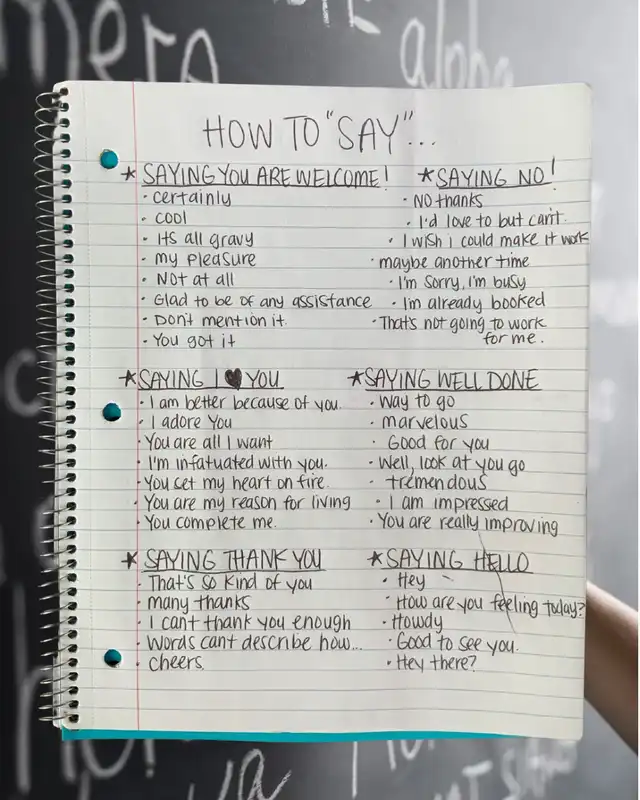 HOW TO "SAY"...
* SAYING YOU ARE WELCOME!
· certainly
· cool
· Its all gravy
· my pleasure
· Not at all
· Glad to be of any assistance
· Don't mention it.
· You got it
* SAYING NO!
· NO thanks
· I'd love to but can't.
· I wish I could make it work
· maybe another time
· I'm sorry, I'm busy
· I'm already booked
· That's not going to work
for me.
* SAYING I ♥ YOU
· I am better because of you.
· I adore You
· You are all I want
· I'm infatuated with you.
· You set my heart on fire.
· You are my reason for living
· You complete me.
* SAYING WELL DONE
· Way to go
· marvelous
· Good for you
· Well, look at you go
· tremendous
· I am impressed
· You are really improving
* SAYING THANK YOU
· That's so kind of you
· many thanks
· I cant thank you enough
· Words cant describe how...
· cheers.
* SAYING HELLO
· Hey
· How are you feeling today?
· Howdy
· Good to see you.
· Hey there?
alpha